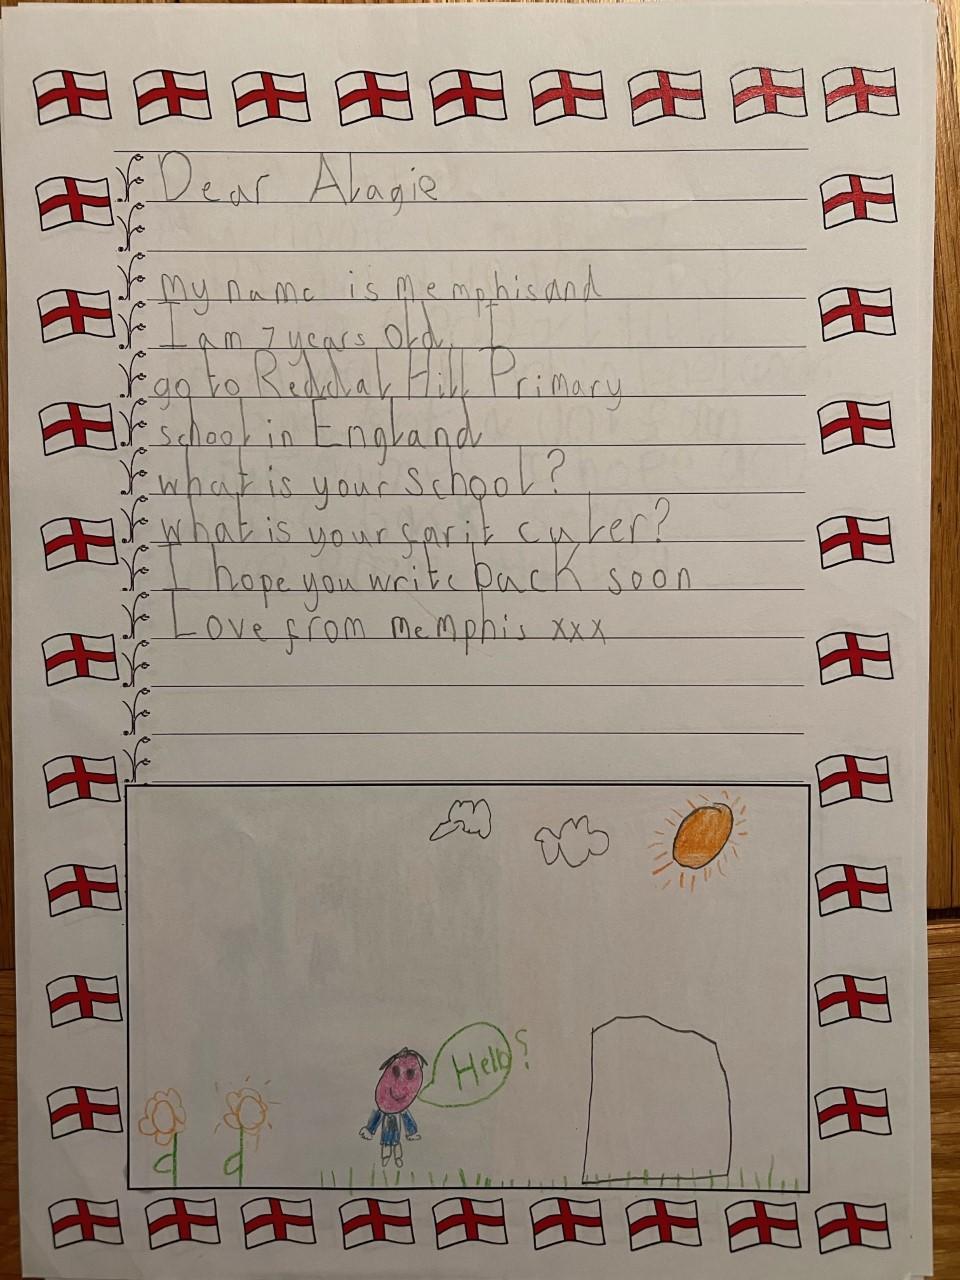 Dear Alagie
my name is memphis and
I am 7 years old. I
go to Reddal Hill Primary
school in England
what is your school?
what is your farit culer?
I hope you write back soon
Love from memphis xxx
Hello?